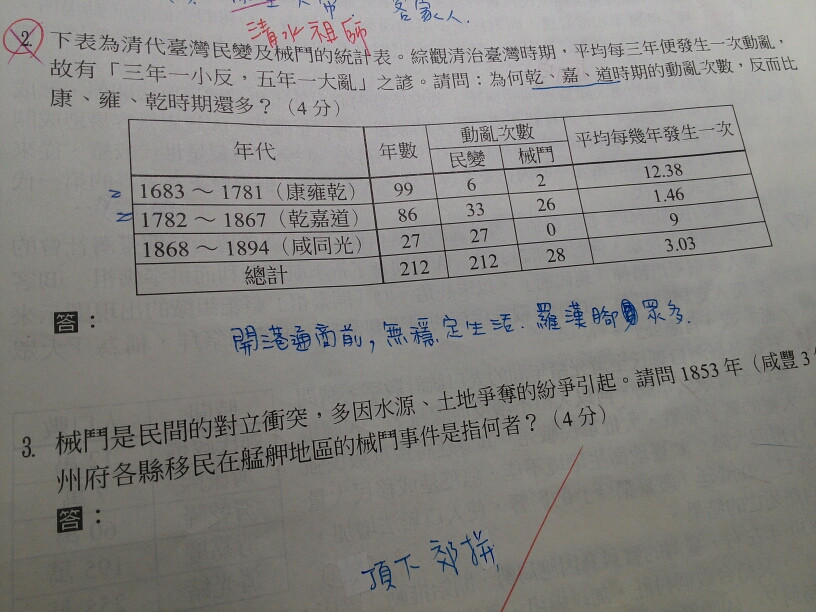 客家人.
清水祖師
2. 下表為清代臺灣民變及械鬥的統計表。綜觀清治臺灣時期，平均每三年便發生一次動亂，
故有「三年一小反，五年一大亂」之諺。請問：為何乾、嘉、道時期的動亂次數，反而比
康、雍、乾時期還多？（4分）
年代 年數 動亂次數 平均每幾年發生一次
民變 械鬥
1683～1781（康雍乾） 99 6 2 12.38
1782～1867（乾嘉道） 86 33 26 1.46
1868～1894（咸同光） 27 27 0 9
總計 212 212 28 3.03
答：
開港通商前，無穩定生活.羅漢腳眾多.
3. 械鬥是民間的對立衝突，多因水源、土地爭奪的紛爭引起。請問1853年（咸豐3
州府各縣移民在艋舺地區的械鬥事件是指何者？（4分）
答：
頂下郊拚